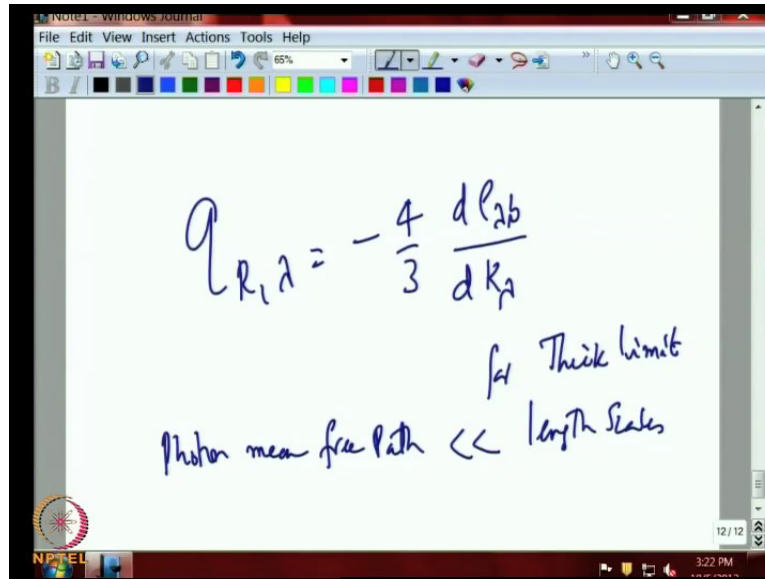 Note1 - Windows Journal
File Edit View Insert Actions Tools Help
65%
B I
q_{R, λ} = - 4/3 de_{λb}/dK_λ
for Thick limit
Photon mean free Path << length Scales
12/12
NPTEL
3:22 PM